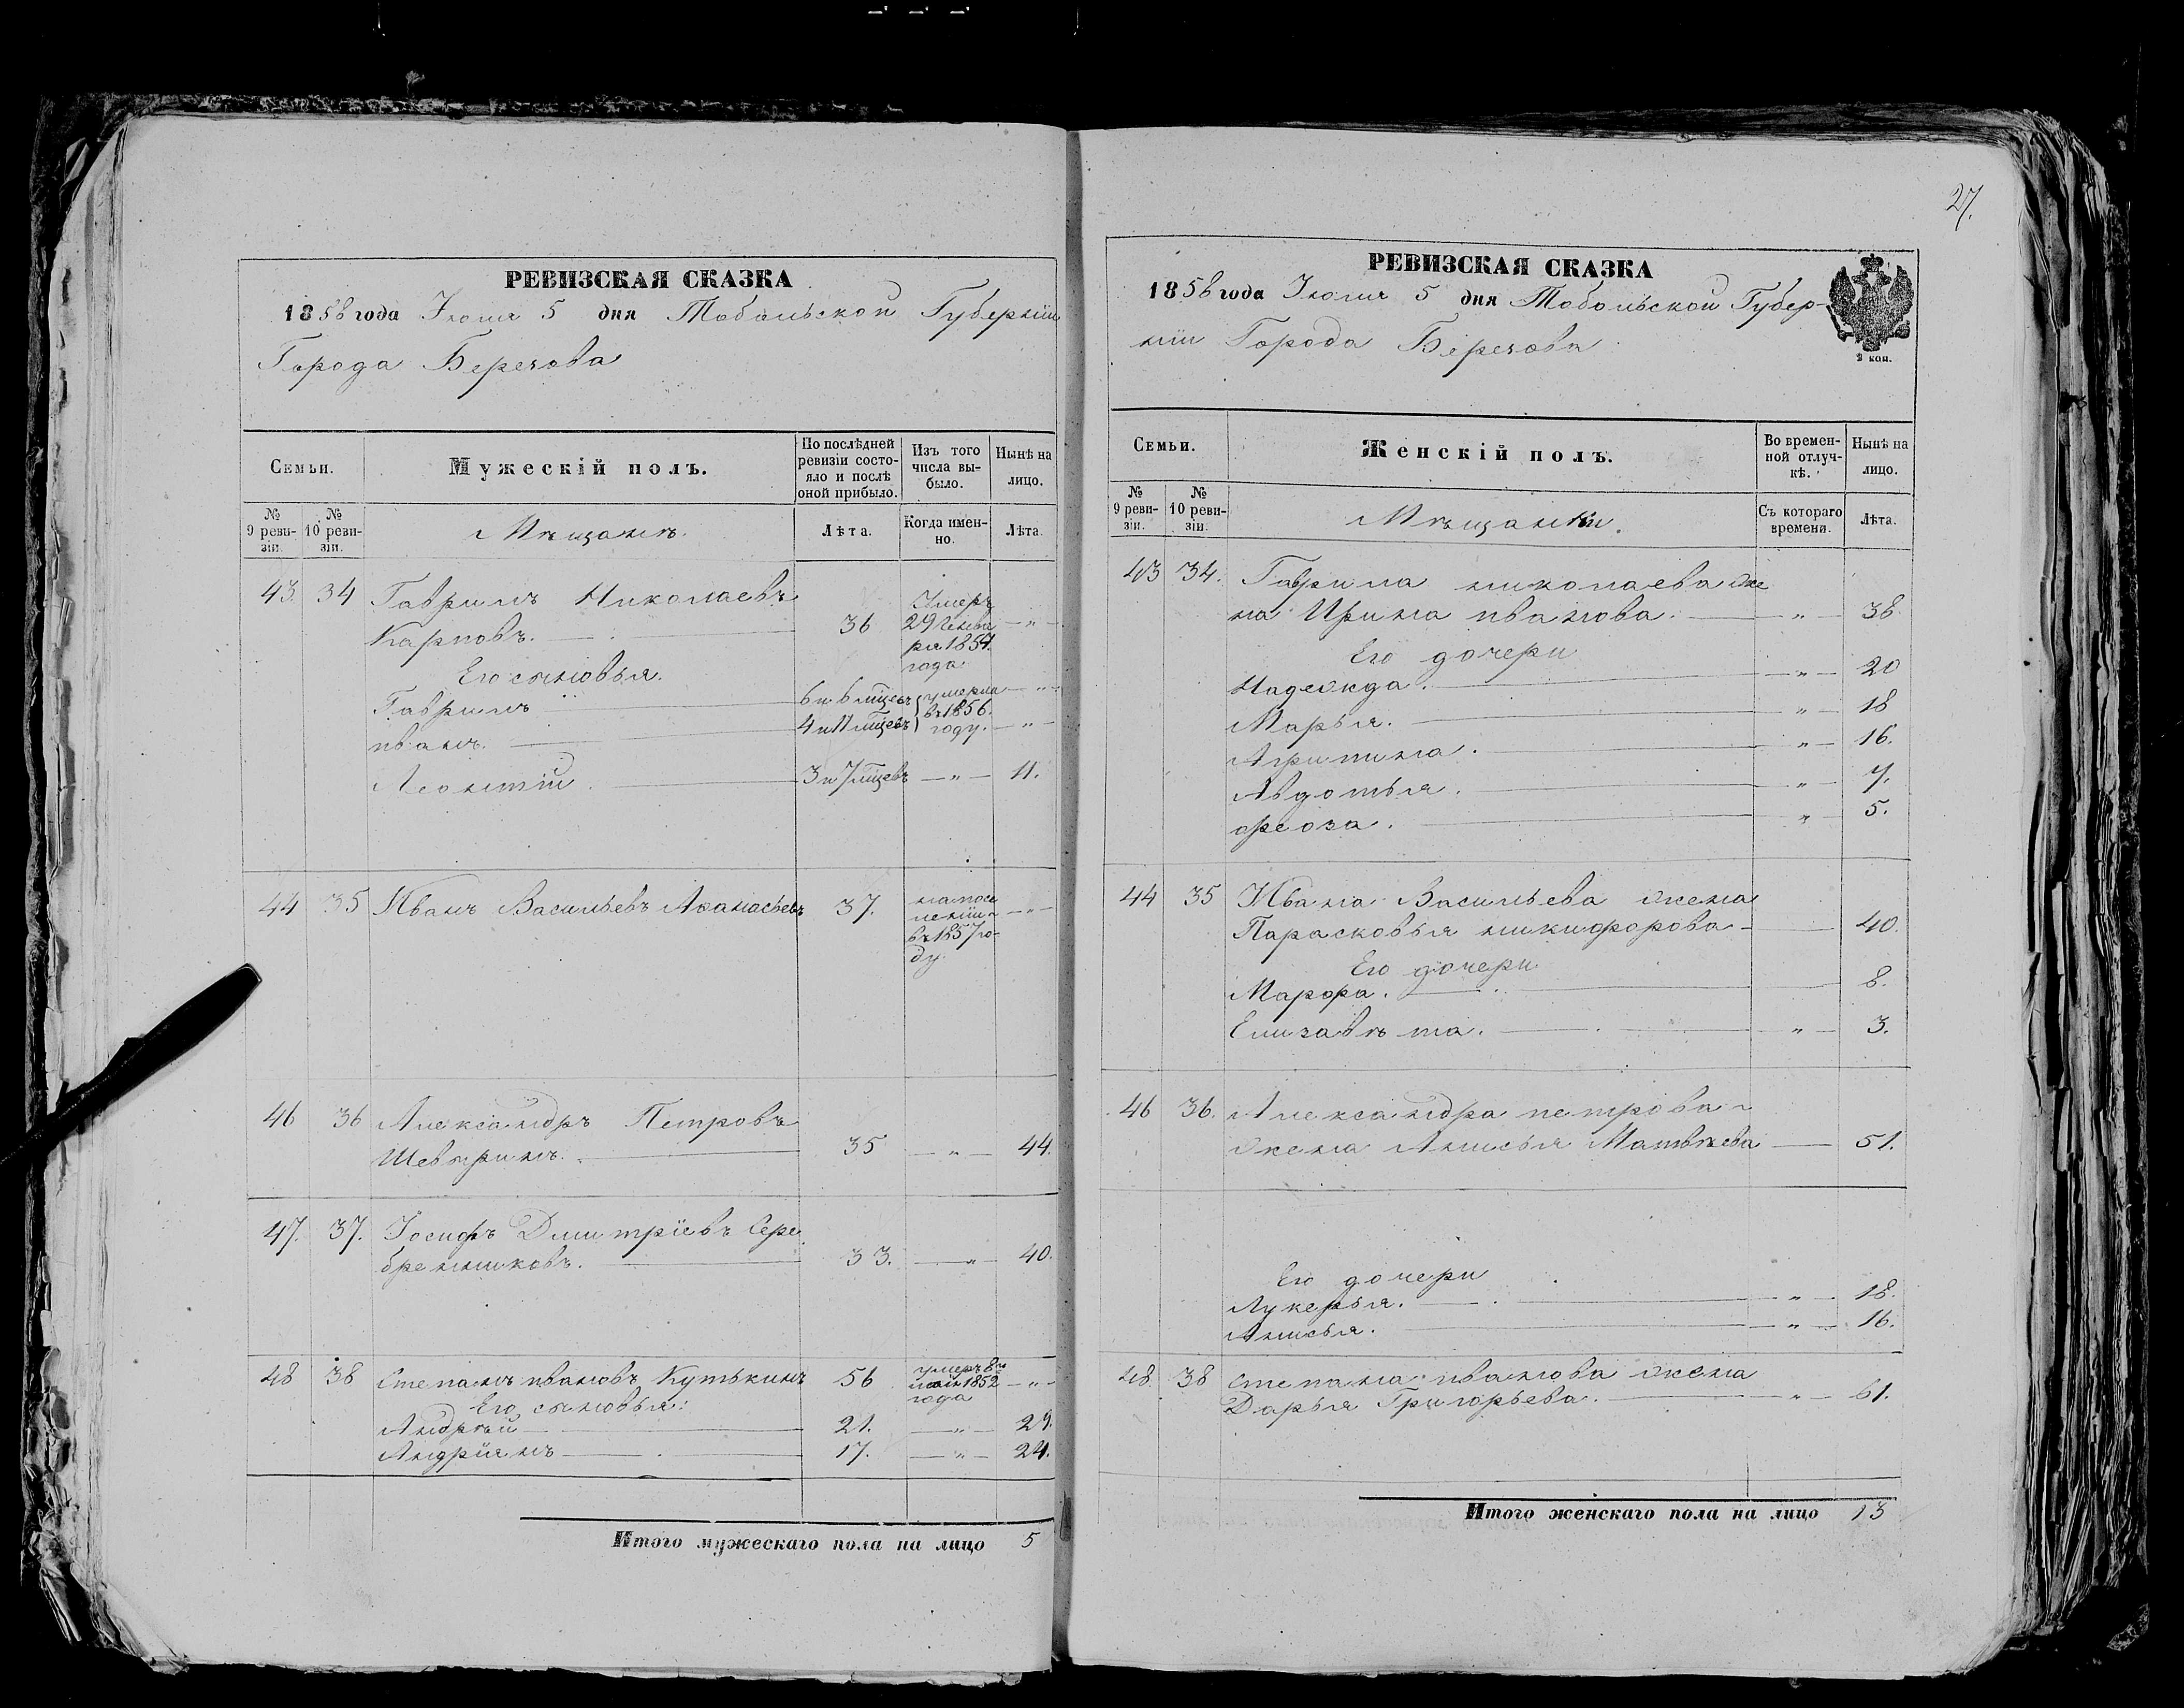 27.
РЕВИЗСКАЯ СКАЗКА
1858 года Іюля 5 дня Тобольской Губерніи
Города Березова
Семьи.
Мужескій полъ.
По послѣдней ревизіи состояло и послѣ оной прибыло.
Изъ того числа выбыло.
Нынѣ на лицо.
№ 9 ревизіи.
№ 10 ревизіи.
Мѣщанѣ.
Лѣта.
Когда именно.
Лѣта
43. 34 Гаврилъ Николаевъ
Карповъ. 36 Умеръ 29 Генваря 1854. года — „ —
Его сыновья.
Гаврилъ 6 и 6 мцевъ умерли — „ —
иванъ. 4 и 11 мцевъ въ 1856. году. — „ —
Леонтій. 3 и 7 мцевъ — „ — 11.
44 35 Иванъ Васильевъ Аѳанасьевъ 37. на поселеніи въ 1857 году. — „ —
46 36 Александръ Петровъ
Шевыринъ. 35 — „ — 44.
47. 37. Іосифъ Дмитріевъ Сере
бренниковъ. 33. — „ — 40.
48 38 Степанъ ивановъ Кутькинъ 56 умеръ 8го маія 1852 года — „ —
Его сыновья:
Андрѣй 21. — „ — 29.
Андріянъ 17. — „ — 24.
Итого мужескаго пола на лицо 5
РЕВИЗСКАЯ СКАЗКА
1858 года Іюля 5 дня Тобольской Губер-
ніи Города Березова
2 коп.
Семьи.
Женскій полъ.
Во временной отлучкѣ.
Нынѣ на лицо.
№ 9 ревизіи.
№ 10 ревизіи.
Мѣщанки.
Съ котораго времени.
Лѣта.
43 34. Гаврила николаева же
на Ирина иванова. — „ — 38.
Его дочери
Надежда. — „ — 20
Марья. — „ — 18
Агрипина. — „ — 16.
Авдотья. — „ — 7.
5.
44 35 Ивана Васильева жена
Парасковья никифорова — 40.
Его дочери
Марфа. 8.
Елизавѣта. — „ — 3.
46 36. Александра петрова
жена Анисья Матвѣева — 51.
Его дочери
Лукерья. — „ — 18.
Анисья. — „ — 16.
48. 38 степана иванова жена
Дарья Григорьева. — „ — 61.
Итого женскаго пола на лицо 13